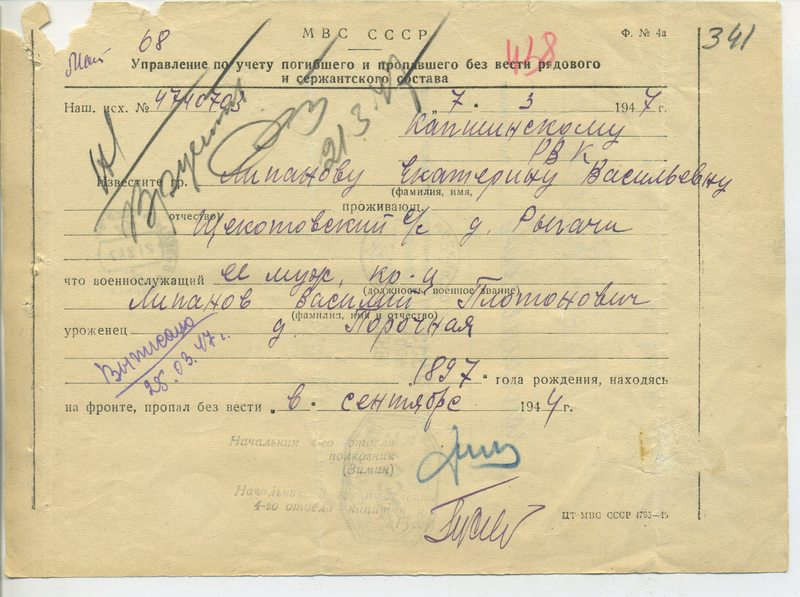 МВС СССР
Ф. № 4а
341
68
438
Управление по учету погибшего и пропавшего без вести рядового
и сержантского состава
Наш. исх. № 4740703
7 · 3 1947 г.
Капшинскому
РВК
21 3 47
Известите гр. Липанову Екатерину Васильевну
(фамилия, имя,
отчество) проживающ.
Щекотовский с/с д. Рыгачи
что военнослужащий ее муж, кр-ц
(должность, военное звание)
Липанов Василий Плотонович
(фамилия, имя и отчество)
уроженец д. Порочная
Выписано
28.03.47 г.
1897 года рождения, находясь
на фронте, пропал без вести в сентябре 1944 г.
Начальник 4-го отдела
полковник
(Зиман)
Начальник
4-го отдела капитан
ЦТ МВС СССР